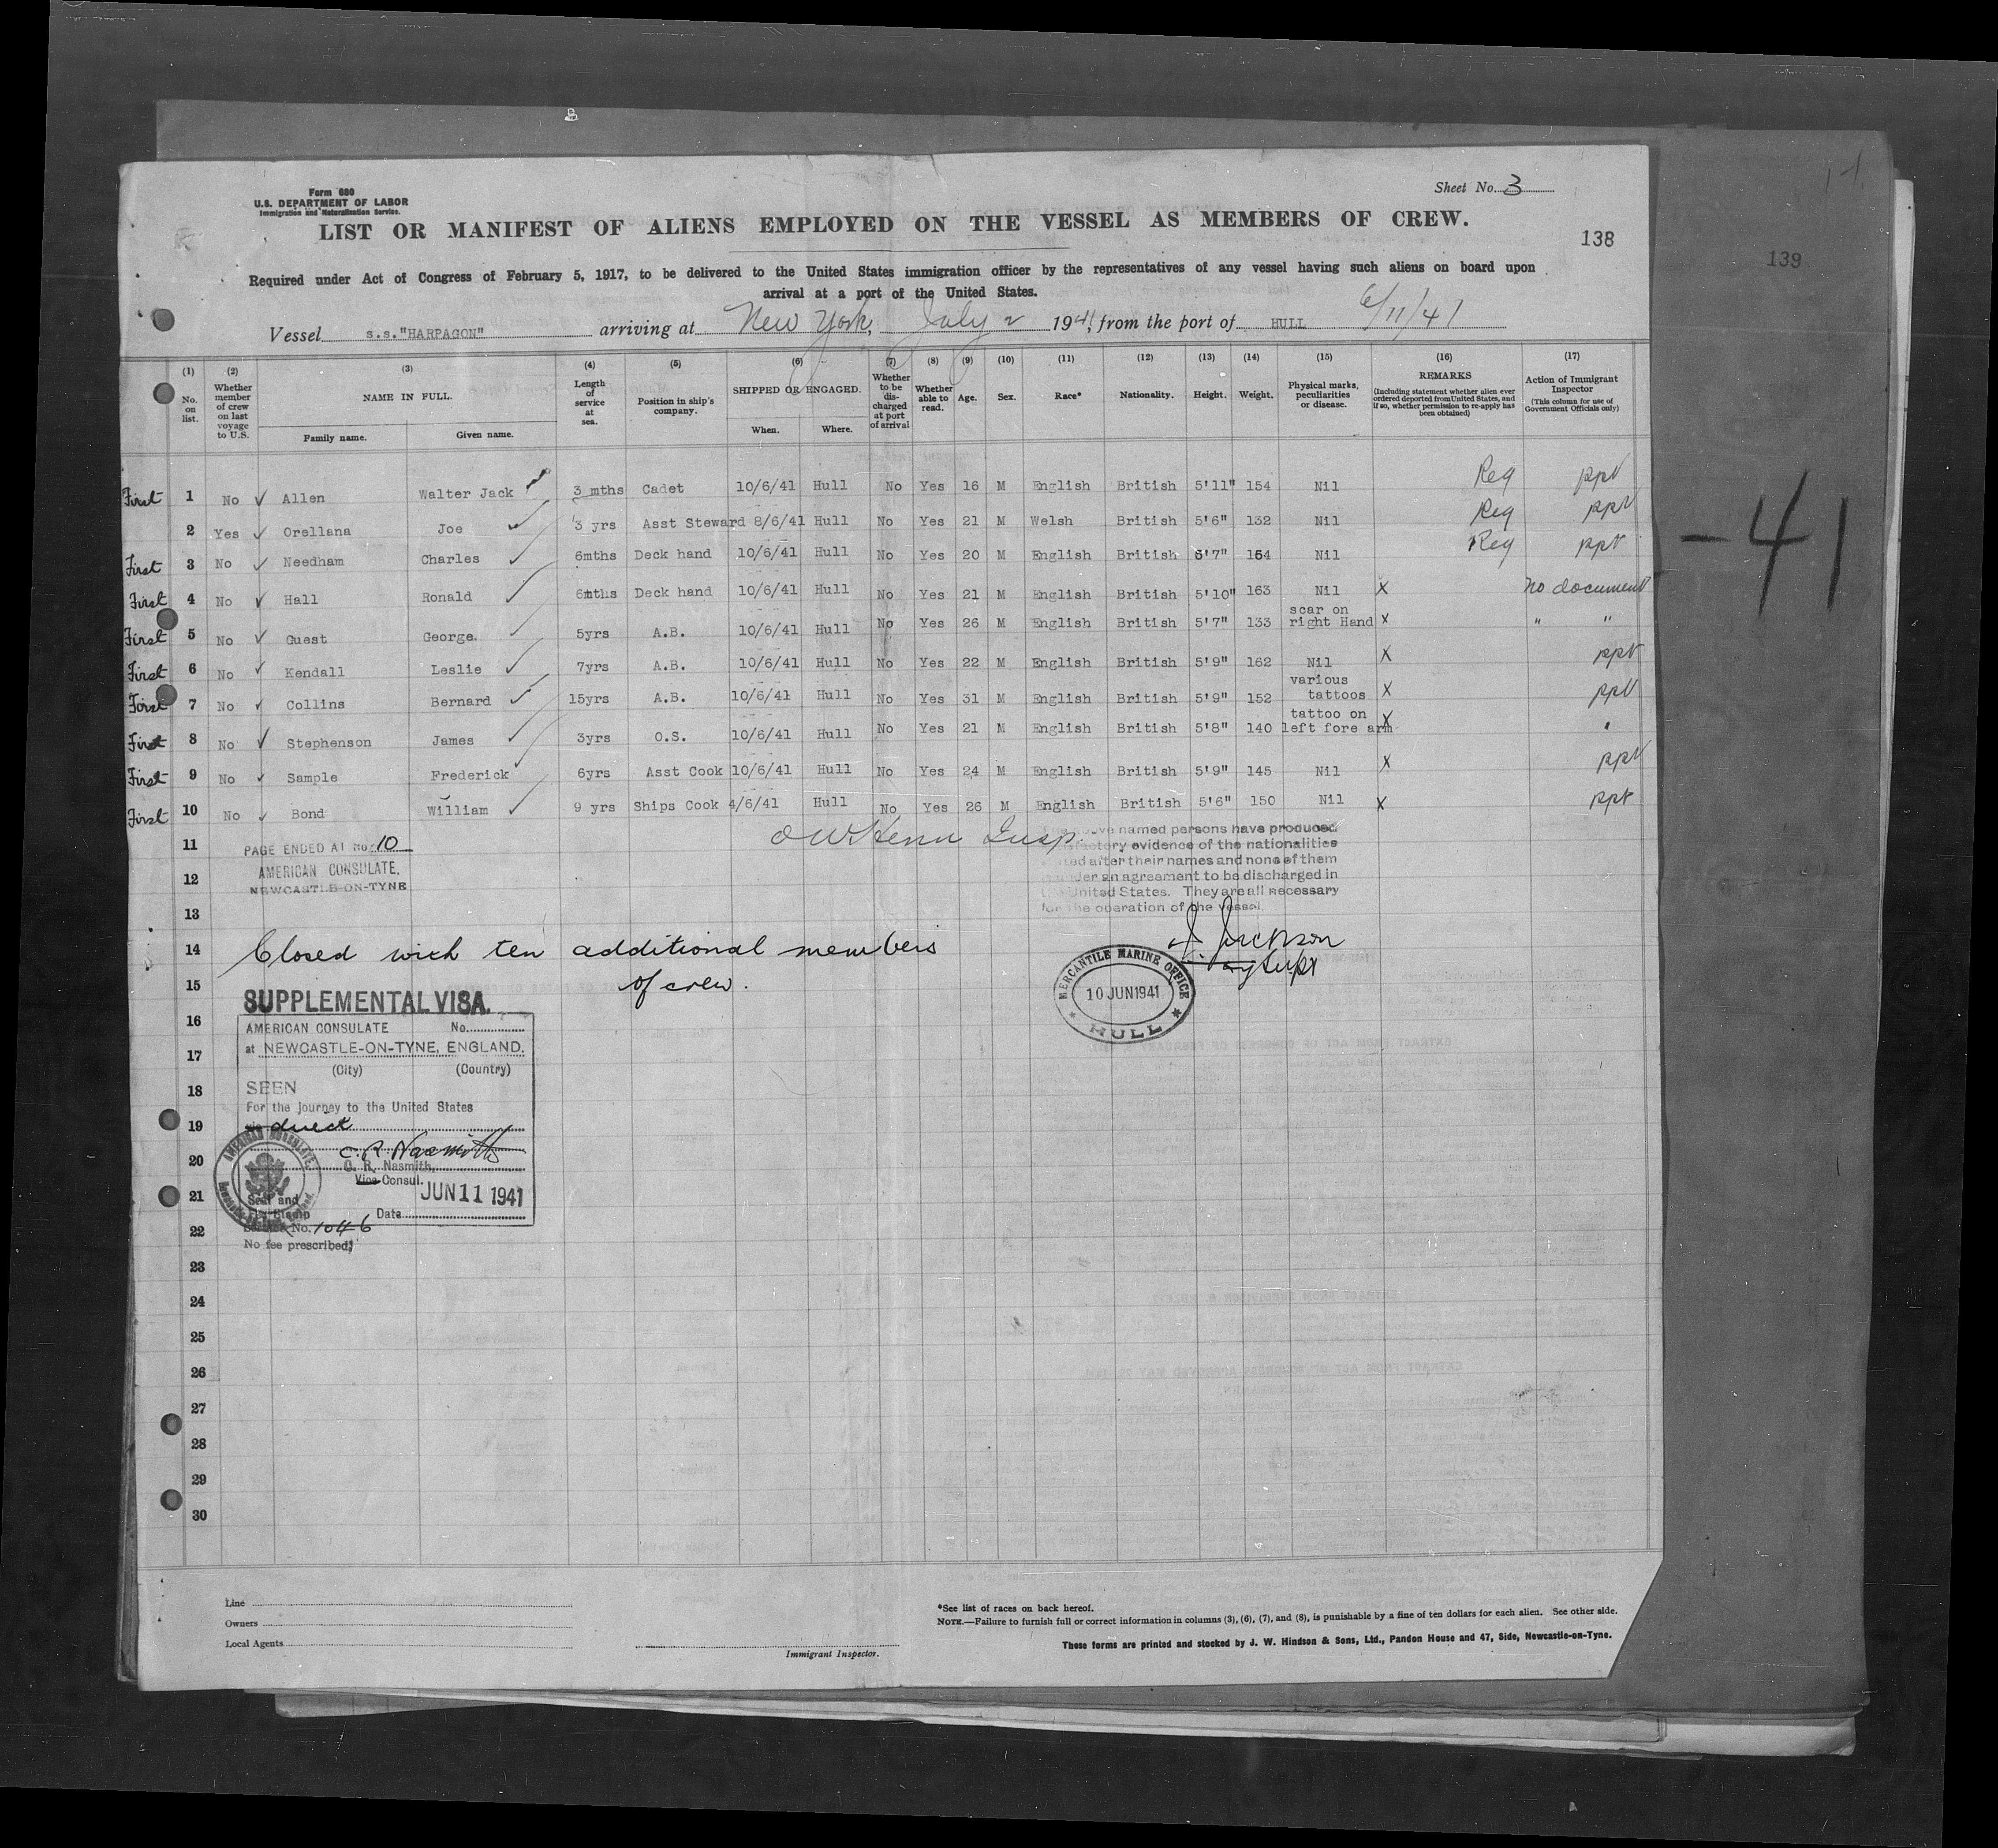 Form 680
U.S. DEPARTMENT OF LABOR
Immigration and Naturalization Service.
Sheet No. 3
LIST OR MANIFEST OF ALIENS EMPLOYED ON THE VESSEL AS MEMBERS OF CREW.
138
139
Required under Act of Congress of February 5, 1917, to be delivered to the United States immigration officer by the representatives of any vessel having such aliens on board upon
arrival at a port of the United States.
Vessel s.s."HARPAGON" arriving at New York, July 2 1941, from the port of HULL 6/11/41
(1) No. on list.
(2) Whether member of crew on last voyage to U.S.
(3) NAME IN FULL. Family name. Given name.
(4) Length of service at sea.
(5) Position in ship's company.
(6) SHIPPED OR ENGAGED. When. Where.
(7) Whether to be discharged at port of arrival
(8) Whether able to read.
(9) Age.
(10) Sex.
(11) Race*
(12) Nationality.
(13) Height.
(14) Weight.
(15) Physical marks, peculiarities or disease.
(16) REMARKS (Including statement whether alien ever ordered deported from United States, and if so, whether permission to re-apply has been obtained)
(17) Action of Immigrant Inspector (This column for use of Government Officials only)
First 1 No ✓ Allen Walter Jack ✓ 3 mths Cadet 10/6/41 Hull No Yes 16 M English British 5'11" 154 Nil Reg ppt
2 Yes ✓ Orellana Joe ✓ 3 yrs Asst Steward 8/6/41 Hull No Yes 21 M Welsh British 5'6" 132 Nil Reg ppt
First 3 No ✓ Needham Charles ✓ 6mths Deck hand 10/6/41 Hull No Yes 20 M English British 5'7" 154 Nil Reg ppt
First 4 No ✓ Hall Ronald ✓ 6mths Deck hand 10/6/41 Hull No Yes 21 M English British 5'10" 163 Nil X No document
First 5 No ✓ Guest George. ✓ 5yrs A.B. 10/6/41 Hull No Yes 26 M English British 5'7" 133 scar on right Hand X " "
First 6 No ✓ Kendall Leslie ✓ 7yrs A.B. 10/6/41 Hull No Yes 22 M English British 5'9" 162 Nil X ppt
First 7 No ✓ Collins Bernard ✓ 15yrs A.B. 10/6/41 Hull No Yes 31 M English British 5'9" 152 various tattoos X ppt
First 8 No ✓ Stephenson James ✓ 3yrs O.S. 10/6/41 Hull No Yes 21 M English British 5'8" 140 tattoo on left fore arm X "
First 9 No ✓ Sample Frederick ✓ 6yrs Asst Cook 10/6/41 Hull No Yes 24 M English British 5'9" 145 Nil X ppt
First 10 No ✓ Bond William ✓ 9 yrs Ships Cook 4/6/41 Hull No Yes 26 M English British 5'6" 150 Nil X ppt
11
12
13
14
15
16
17
18
19
20
21
22
23
24
25
26
27
28
29
30
PAGE ENDED AT No. 10
AMERICAN CONSULATE,
NEWCASTLE-ON-TYNE
Insp.
above named persons have produced
satisfactory evidence of the nationalities
after their names and none of them
under an agreement to be discharged in
United States. They are all necessary
for the operation of the vessel.
J. Jackson
Supt
MERCANTILE MARINE OFFICE
10 JUN 1941
HULL
Closed with ten additional members
of crew.
SUPPLEMENTAL VISA.
AMERICAN CONSULATE No.
at NEWCASTLE-ON-TYNE, ENGLAND.
(City) (Country)
SEEN
For the journey to the United States
via direct
C. R. Nasmith
C. R. Nasmith,
Vice Consul.
Seal and
Fee Stamp Date JUN 11 1941
Service No. 1046
No fee prescribed;
AMERICAN CONSULATE
-41
Line
Owners
Local Agents
Immigrant Inspector.
*See list of races on back hereof.
NOTE.—Failure to furnish full or correct information in columns (3), (6), (7), and (8), is punishable by a fine of ten dollars for each alien. See other side.
These forms are printed and stocked by J. W. Hindson & Sons, Ltd., Pandon House and 47, Side, Newcastle-on-Tyne.